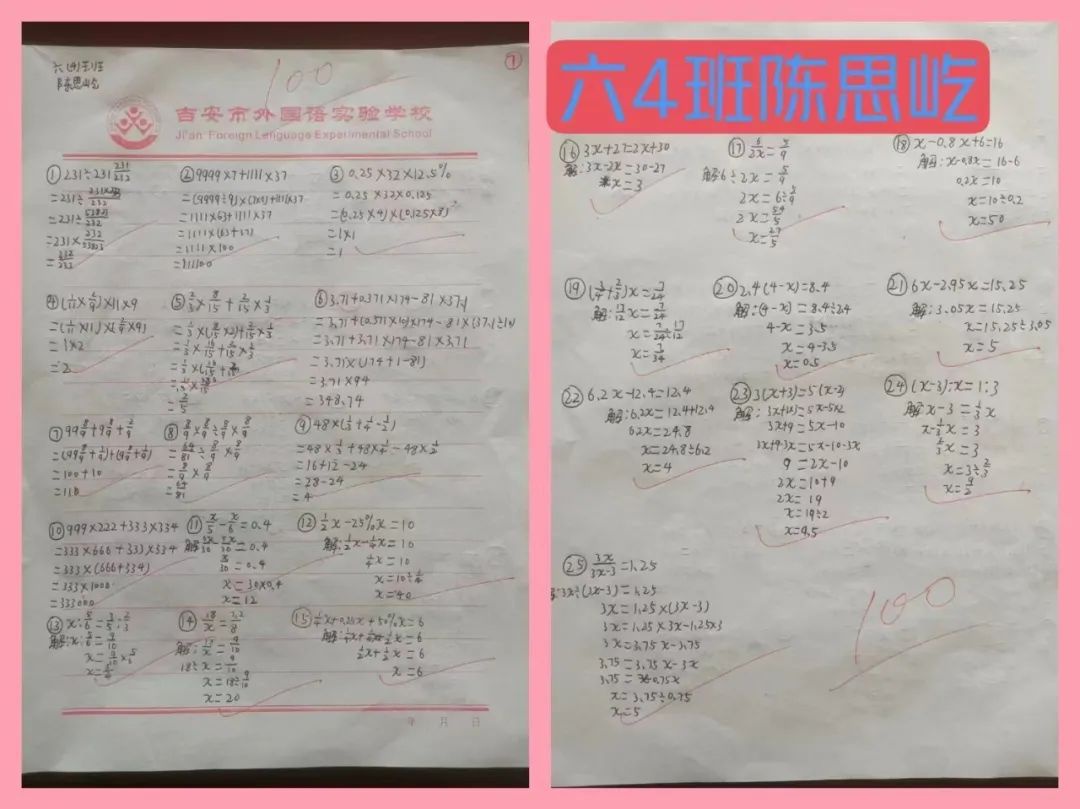 六(4)班
陈思屹
100
①
吉安市外国语实验学校
Ji'an Foreign Language Experimental School
①231÷231 231/232
=231÷
=231÷
=231×
② 9999×7+1111×37
=(9999÷9)×(7×9)+1111×37
=1111×63+1111×37
=1111×(63+37)
=1111×100
=111100
③ 0.25×32×12.5%
=0.25×32×0.125
=(0.25×4)×(0.125×8)
=1×1
=1
×11×9
=1×2
=2
⑤ 2/3×8/15+2/15×1/3
=2/5
⑥ 3.71+0.371×174-81×37.1
=3.71+3.71×174-81×3.71
=3.71×(174+1-81)
=3.71×94
=348.74
⑦ 99 8/9+9 8/9+2/9
=100+10
=110
⑧ 8/9×8/9÷8/9×8/9
=64/81÷8/9×8/9
=8/9×8/9
=64/81
⑨ 48×(1/3+1/4-1/2)
=48×1/3+48×1/4-48×1/2
=16+12-24
=28-24
=4
⑩ 999×222+333×334
=333×666+333×334
=333×(666+334)
=333×1000
=333000
⑪ x/5-x/6=0.4
x/30=0.4
x=30×0.4
x=12
⑫ 1/2x-25%x=10
解:1/2x-1/4x=10
1/4x=10
x=10÷1/4
x=40
⑬ x:5/6=3/5:2/3
解:x:5/6=9/10
x=9/10×5/6
x=3/4
⑭ 18/x=7.2/8
18÷x=9/10
x=18÷9/10
x=20
⑮ 1/4x+0.25x+50%x=6
1/2x+1/2x=6
x=6
六4班陈思屹
⑯ 3x+27=2x+30
解:3x-2x=30-27
x=3
⑰ 6/2x=5/9
解:6÷2x=5/9
2x=6÷5/9
2x=54/5
x=27/5
⑱ x-0.8x+6=16
解:x-0.8x=16-6
0.2x=10
x=10÷0.2
x=50
⑲ (3/4+2/3)x=7/24
解:17/12x=7/24
x=7/24÷17/12
x=7/34
⑳ 2.4(4-x)=8.4
解:(4-x)=8.4÷2.4
4-x=3.5
x=4-3.5
x=0.5
㉑ 6x-2.95x=15.25
解:3.05x=15.25
x=15.25÷3.05
x=5
㉒ 6.2x-12.4=12.4
解:6.2x=12.4+12.4
6.2x=24.8
x=24.8÷6.2
x=4
㉓ 3(x+3)=5(x-2)
解:3x+3×3=5x-5×2
3x+9=5x-10
3x+9-3x=5x-10-3x
9=2x-10
2x=10+9
2x=19
x=19÷2
x=9.5
㉔ (x-3):x=1:3
解:x-3=1/3x
x-1/3x=3
2/3x=3
x=3÷2/3
x=9/2
㉕ 3x/3x-3=1.25
解:3x÷(3x-3)=1.25
3x=1.25×(3x-3)
3x=1.25×3x-1.25×3
3x=3.75x-3.75
3.75=3.75x-3x
3.75=0.75x
x=3.75÷0.75
x=5
100
年 月 日